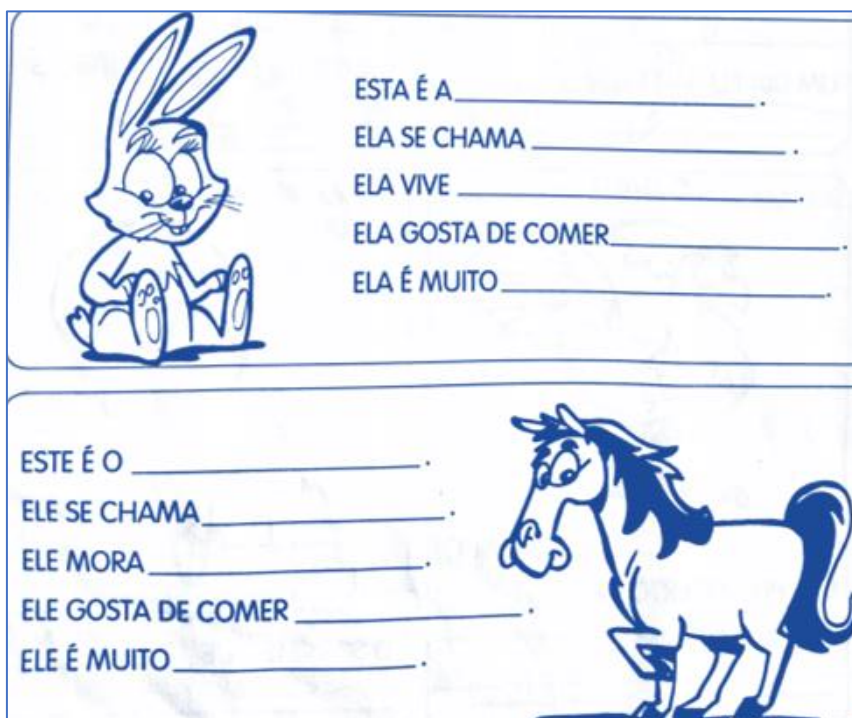 ESTA É A____________________.
ELA SE CHAMA ____________________.
ELA VIVE ____________________.
ELA GOSTA DE COMER____________________.
ELA É MUITO____________________.
ESTE É O ____________________.
ELE SE CHAMA____________________.
ELE MORA ____________________.
ELE GOSTA DE COMER ____________________.
ELE É MUITO____________________.